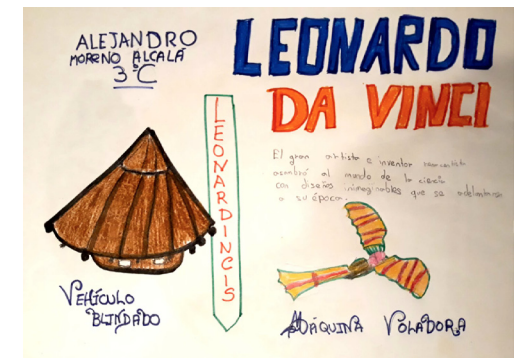 ALEJANDRO
MORENO ALCALÁ
3ºC
LEONARDO
DA VINCI
El gran artista e inventor
asombró al mundo de la ciencia
con diseños inimaginables que se adelantaron
a su época.
LEONARDINCIS
VEHÍCULO
BLINDADO
MÁQUINA VOLADORA